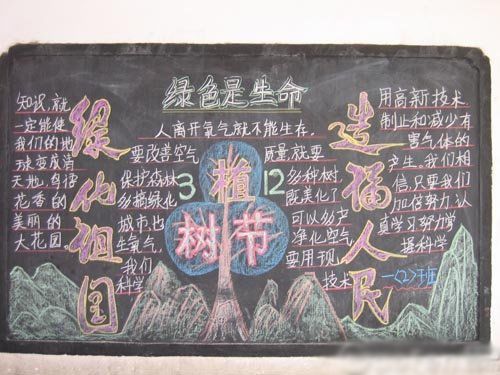 绿色是生命
绿化祖国
造福人民
3 植 12
树节
人离开氧气就不能生存,
要改善空气 质量,就要
保护森林 多种树,
多搞绿化 既美化了
城市,也 可以多产
生氧气, 净化空气
我们 要用现
科学 技术
用高新技术
制止和减少有
害气体的
产生。我们相
信,只要我们
加倍努力,认
真学习努力学
握科学
知识,就
一定能使
我们的地
球变成满
天地,鸟
花香的
美丽的
大花园
一〈2〉班